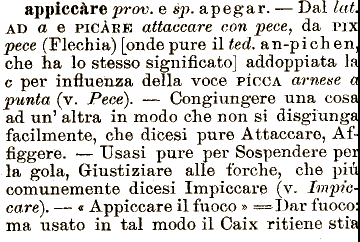 appiccàre prov. e sp. apegar. — Dal lat.
AD a e PICÀRE attaccare con pece, da PIX
pece (Flechia) [onde pure il ted. an-pichen,
che ha lo stesso significato] addoppiata la
c per influenza della voce PÌCCA arnese a
punta (v. Pece). — Congiungere una cosa
ad un' altra in modo che non si disgiunga
facilmente, che dicesi pure Attaccare, Af-
figgere. — Usasi pure per Sospendere per
la gola, Giustiziare alle forche, che più
comunemente dicesi Impiccare (v. Impic-
care). — « Appiccare il fuoco » = Dar fuoco:
ma usato in tal modo il Caix ritiene stia